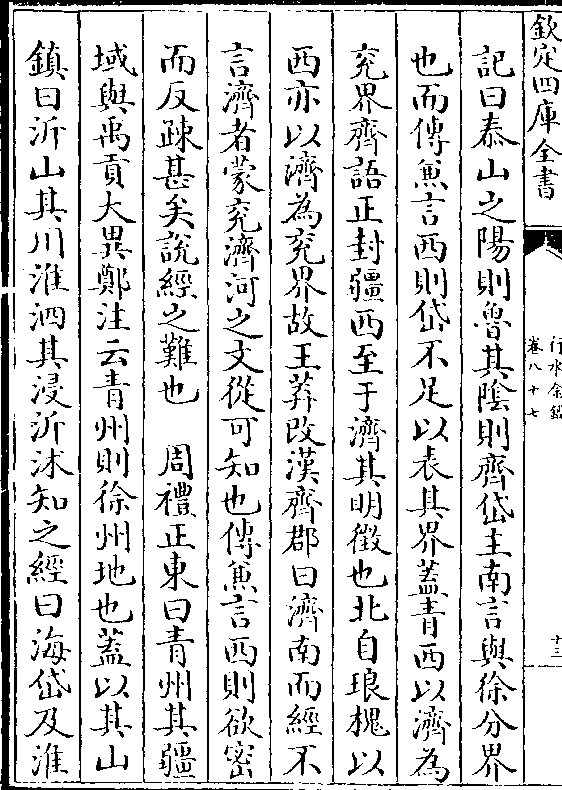 欽定四庫全書
行水金鑑
卷八十七
十三
記曰泰山之陽則魯其隂則齊岱主南言與徐分界
也而傳兼言西則岱不足以表其界蓋青西以濟為
兖界齊語正封疆西至于濟其明徴也北自琅槐以
西亦以濟為兖界故王莽改漢齊郡曰濟南而經不
言濟者蒙兖濟河之文從可知也傳兼言西則欲密
而反疎甚矣說經之難也　周禮正東曰青州其疆
域與禹貢大異鄭注云青州則徐州地也蓋以其山
鎮曰沂山其川淮泗其浸沂沭知之經曰海岱及淮